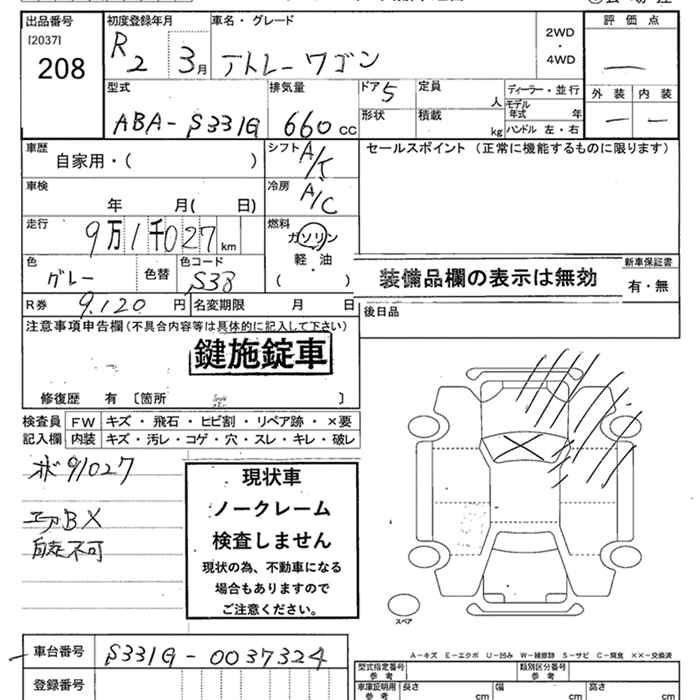 出品番号 初度登録年月 車名・グレード 評価点
[2037] R2 3月 アトレーワゴン 2WD・4WD
208
型式 排気量 ドア 5 定員 人 ディーラー・並行 外装 内装
ABA-S331G 660cc 形状 積載 kg モデル年式 年
ハンドル 左・右
車歴 自家用・( ) シフト A/T セールスポイント(正常に機能するものに限ります)
車検 年 月( 日) 冷房 A/C
走行 9万1千027km 燃料 ガソリン
軽・油
( )
色 グレー 色替 色コード S38 装備品欄の表示は無効 新車保証書
有・無
R券 9,120円 名変期限 月 日 後日品
注意事項申告欄(不具合内容等は具体的に記入して下さい)
鍵施錠車
修復歴 有 〔箇所 〕
検査員 FW キズ・飛石・ヒビ割・リペア跡・×要
記入欄 内装 キズ・汚レ・コゲ・穴・スレ・キレ・破レ
メーター91027
エアBX
自走不可
現状車
ノークレーム
検査しません
現状の為、不動車になる
場合もありますので
ご注意ください。
スペア
A-キズ E-エクボ U-凹み W-補修跡 S-サビ C-腐食 ××-交換済
車台番号 S331G-0037324
登録番号
型式指定番号 参考 類別区分番号 参考
車庫証明用 参考 長さ cm 幅 cm 高さ cm